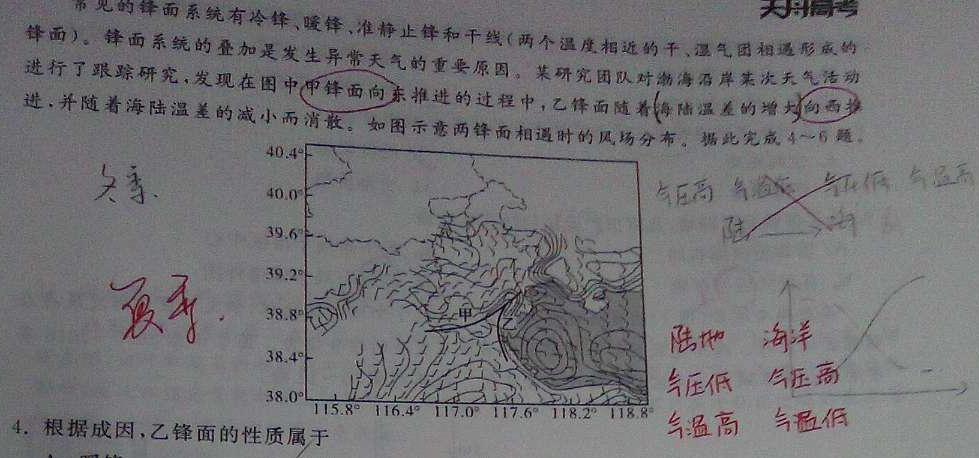 天舟高考
常见的锋面系统有冷锋、暖锋、准静止锋和干线(两个温度相近的干、湿气团相遇形成的
锋面)。锋面系统的叠加是发生异常天气的重要原因。某研究团队对渤海沿岸某次天气活动
进行了跟踪研究,发现在图中甲锋面向东推进的过程中,乙锋面随着海陆温差的增大向西推
进,并随着海陆温差的减小而消散。如图示意两锋面相遇时的风场分布。据此完成4~6题。
冬季.
夏季.
40.4°
40.0°
39.6°
39.2°
38.8°
38.4°
38.0°
甲
乙
115.8° 116.4° 117.0° 117.6° 118.2° 118.8°
气压高 气温低 气压低 气温高
陆 海
陆地 海洋
气压低 气压高
气温高 气温低
4. 根据成因,乙锋面的性质属于